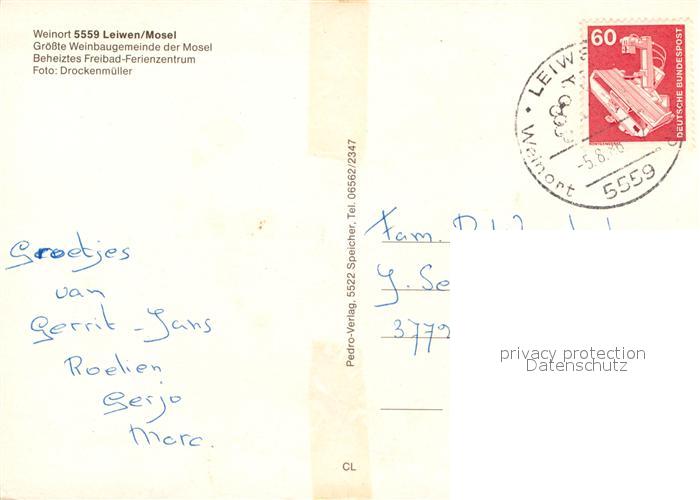 Weinort 5559 Leiwen/Mosel
Größte Weinbaugemeinde der Mosel
Beheiztes Freibad-Ferienzentrum
Foto: Drockenmüller
Groetjes
van
Gerrit-Jans
Roelien
Gerjo
Marc.
Pedro-Verlag, 5522 Speicher, Tel. 06562/2347
CL
60
DEUTSCHE BUNDESPOST
Weinort
5559
Fam.
J. Se
3772
privacy protection
Datenschutz